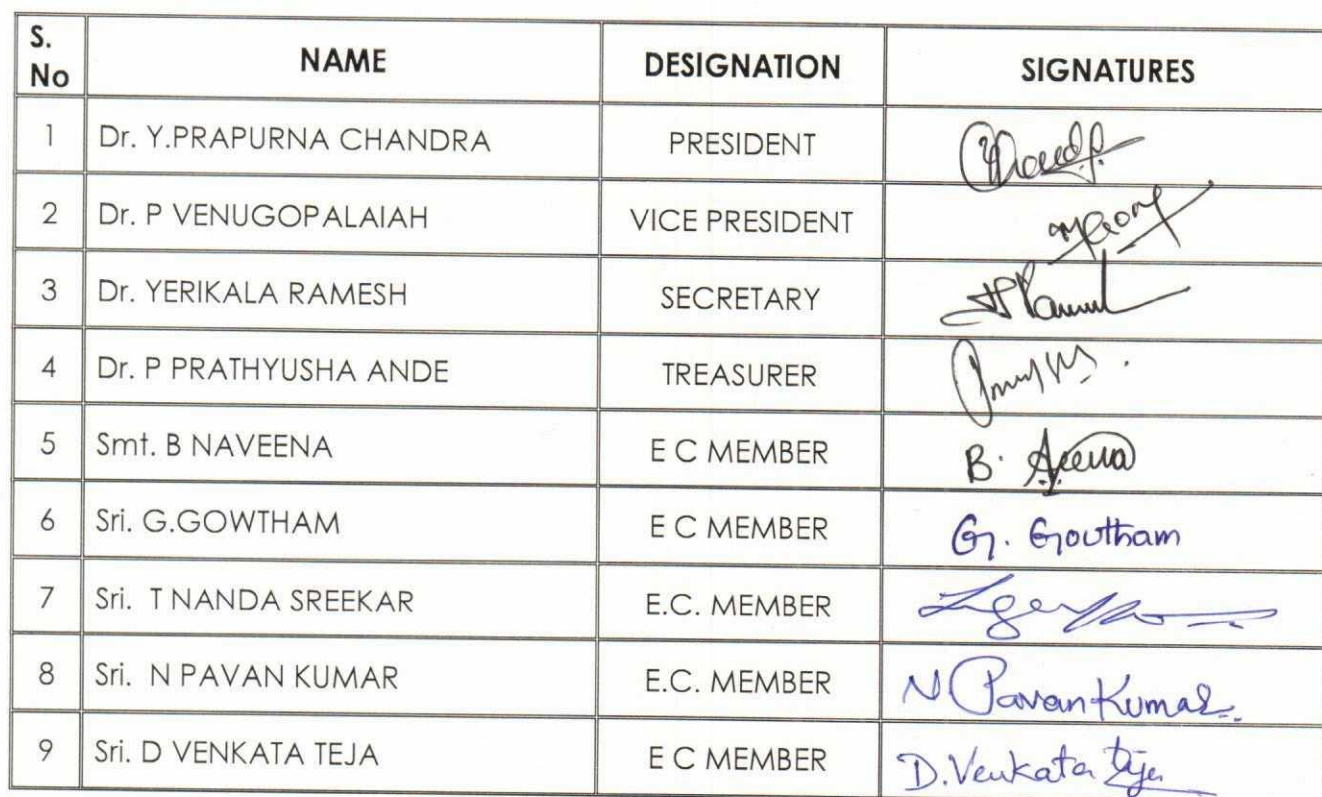 S. No NAME DESIGNATION SIGNATURES
1 Dr. Y.PRAPURNA CHANDRA PRESIDENT
2 Dr. P VENUGOPALAIAH VICE PRESIDENT
3 Dr. YERIKALA RAMESH SECRETARY
4 Dr. P PRATHYUSHA ANDE TREASURER
5 Smt. B NAVEENA E C MEMBER B.
6 Sri. G.GOWTHAM E C MEMBER G. Goutham
7 Sri. T NANDA SREEKAR E.C. MEMBER
8 Sri. N PAVAN KUMAR E.C. MEMBER N Pavan Kumar
9 Sri. D VENKATA TEJA E C MEMBER D. Venkata Teja